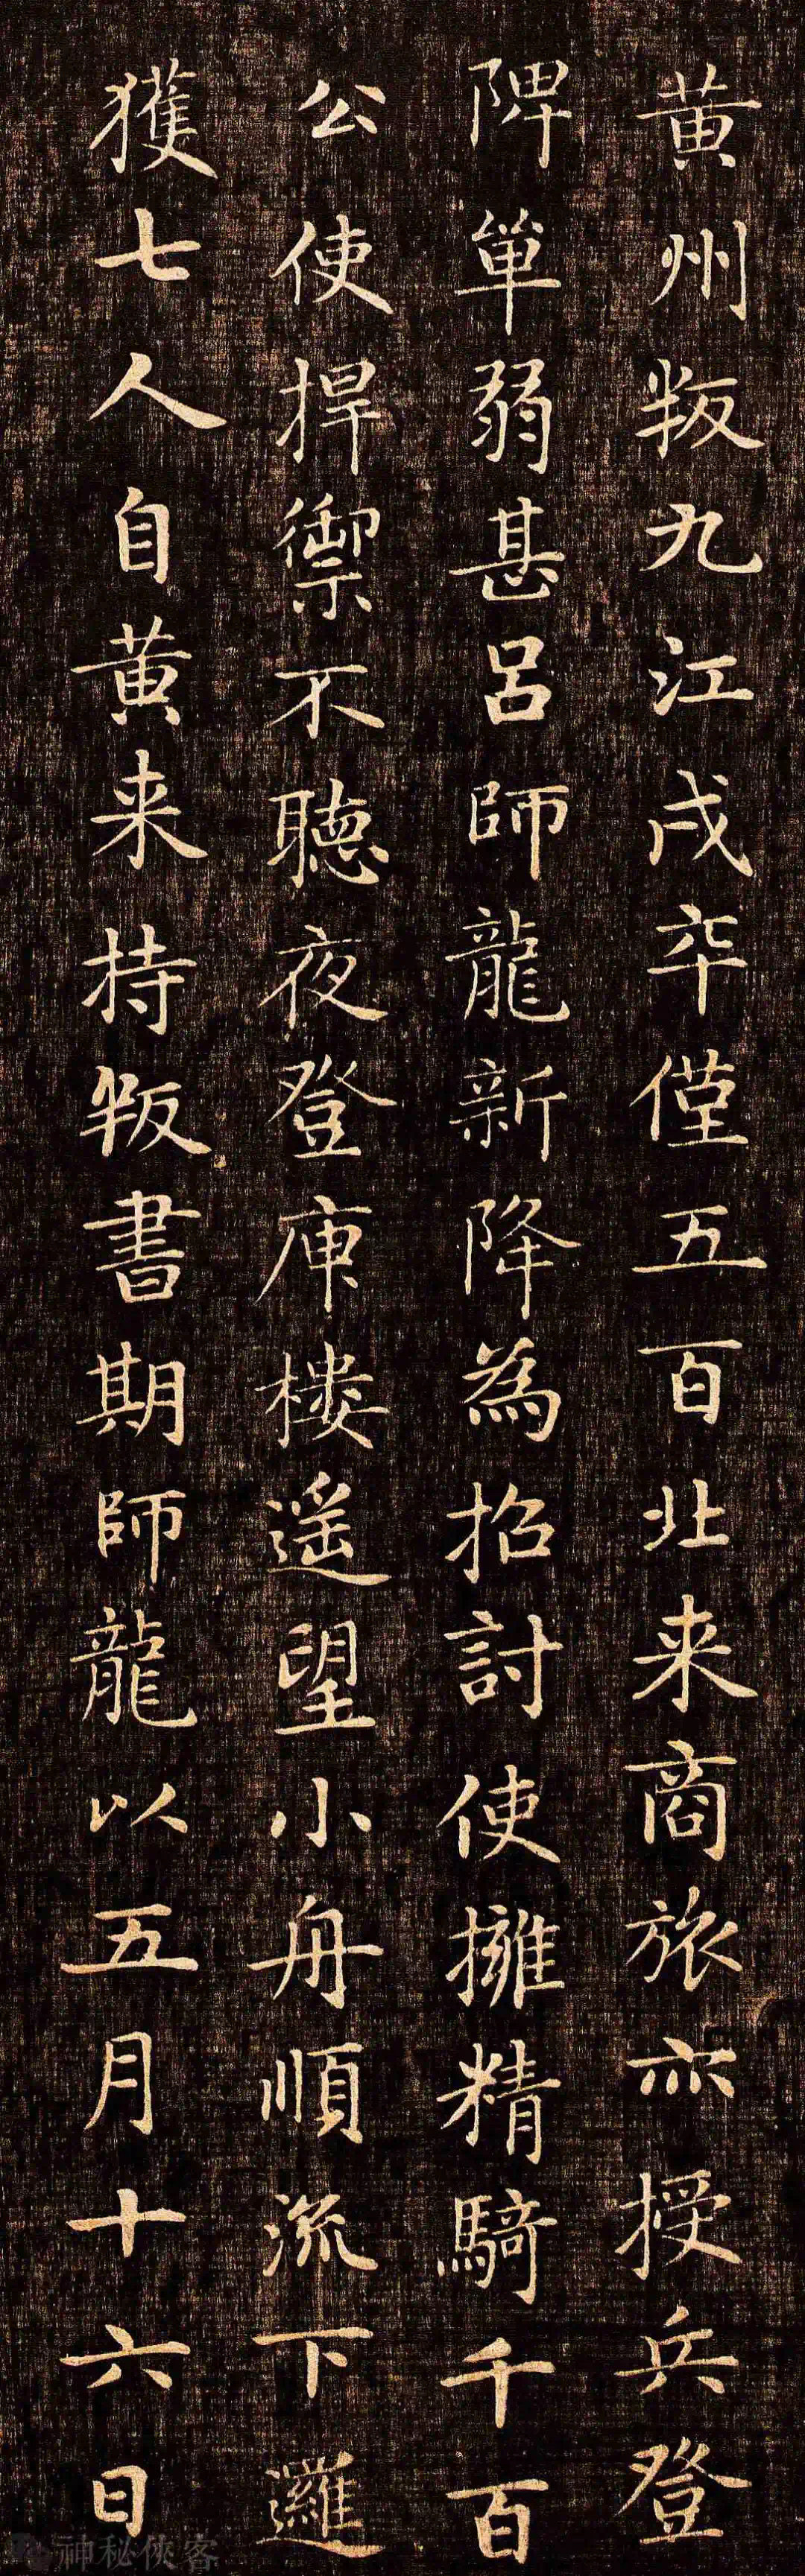 黄州叛九江戍卒僅五百北来商旅亦授兵登
陴單弱甚呂師龍新降為招討使擁精騎千百
公使捍禦不聽夜登庾樓遥望小舟順流下邏
獲七人自黄来持叛書期師龍以五月十六日
神秘俠客